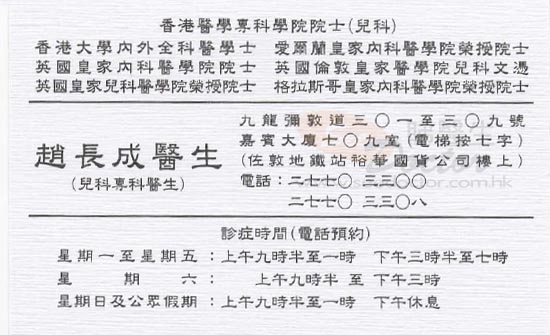 香港醫學專科學院院士(兒科)
香港大學內外全科醫學士 愛爾蘭皇家內科醫學院榮授院士
英國皇家內科醫學院院士 英國倫敦皇家醫學院兒科文憑
英國皇家兒科醫學院榮授院士 格拉斯哥皇家內科醫學院榮授院士
九龍彌敦道三〇一至三〇九號
嘉賓大廈七〇九室(電梯按七字)
(佐敦地鐵站裕華國貨公司樓上)
趙長成醫生
(兒科專科醫生)
電話:二七七〇 三三〇〇
二七七〇 三三〇八
診症時間(電話預約)
星期一至星期五:上午九時半至一時 下午三時半至七時
星期六:上午九時半至下午三時
星期日及公眾假期:上午九時半至一時 下午休息